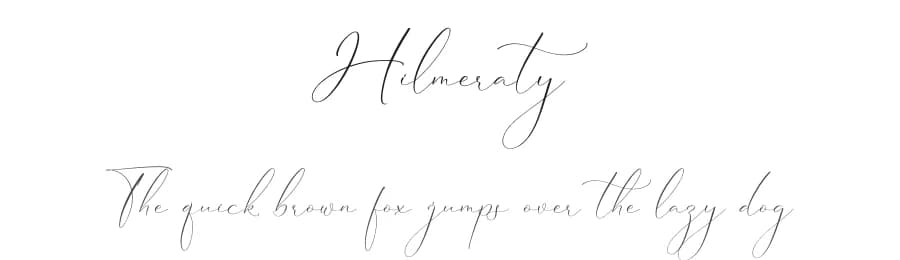 Hilmeraty
The quick brown fox jumps over the lazy dog